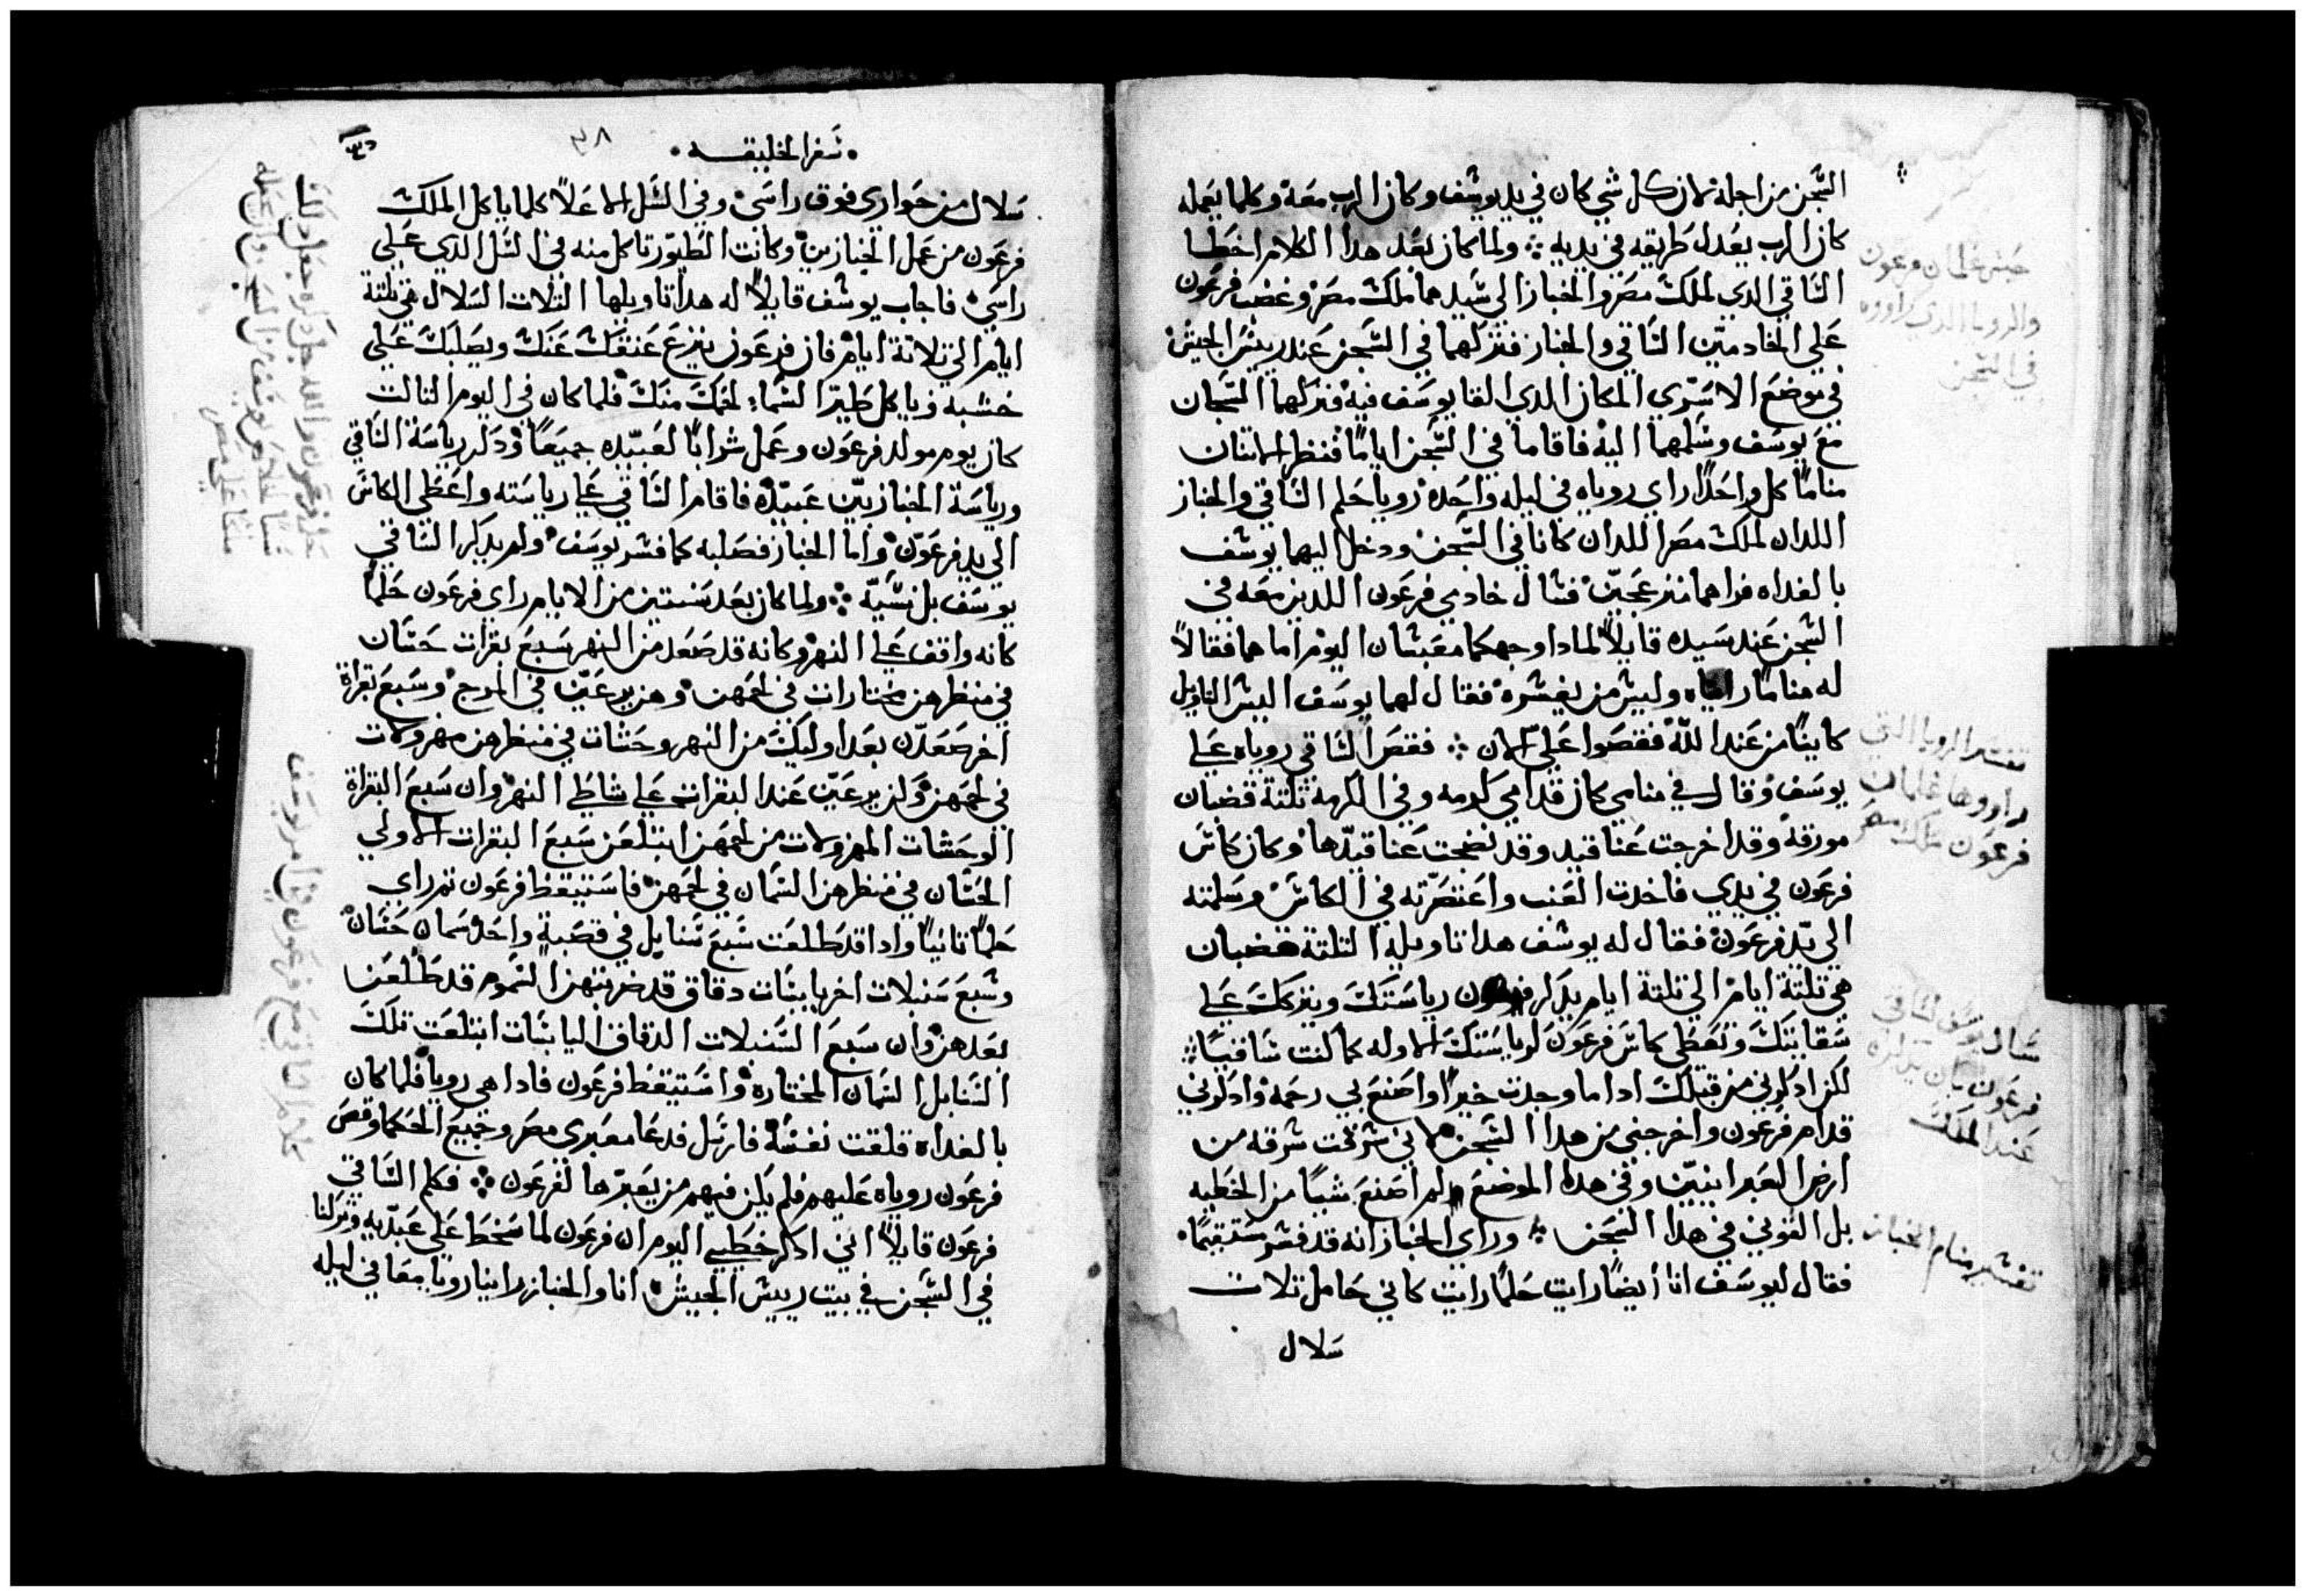 السجن من اجله لان كل شي كان في يد يوسف وكان الرب معه وكلما يعمله
كان الرب يعدل طريقه في يديه ۞ ولما كان بعد هدا الكلام اخطا
الساقي الدي لملك مصر والخباز الي سيدهما ملك مصر وغضب فرعون
علي الخادمين الساقي والخباز فتركهما في السجن عند رييس الجيش
في موضع الاسري المكان الدي القا يوسف فيه فتركهما السجان
مع يوسف وسلمهما اليه فاقاما في السجن اياما فنظر الاتنان
مناما كل واحدا راي روياه في ليله واحده رويا حلم الساقي والخباز
اللدان لملك مصر اللدان كانا في السجن ودخل اليهما يوسف
بالغداه فراهما منزعجين فسال خادمي فرعون اللدين معه في
السجن عند سيده قايلا لمادا وجهكما معبسان اليوم اما هما فقالا
له مناما رايناه وليس من يفسره فقال لهما يوسف اليس التاويل
كاينا من عند الله فقصوا علي الان ۞ فقص الساقي روياه علي
يوسف وقال في منامي كان قدامي كرمه وفي الكرمه تلتة قضبان
مورقه وقد اخرجت عناقيد وقد نضجت عناقيدها وكان كاس
فرعون في يدي فاخدت العنب واعتصرته في الكاس وسلمته
الي يد فرعون فقال له يوسف هدا تاويله التلتة قضبان
هي تلتة ايام الي تلتة ايام يدكر فرعون رياستك ويتركك علي
سقايتك وتعطي كاس فرعون لرياستك الاوله كما كنت ساقيا ۞
لكن ادكرني من قبلك ادا ما وجدت خيرا واصنع بي رحمه وادكرني
قدام فرعون واخرجني من هدا السجن لاني سرقت سرقه من
ارض العبرانيين وفي هدا الموضع ولم اصنع شيا من الخطيه
بل القوني في هدا السجن ۞ وراي الخباز انه قد فسر مستقيما
فقال ليوسف انا ايضا رايت حلما رايت كاني حامل تلات
سلال
حبس غلمان فرعون
والرويا الدي راووه
في السجن
تفسير الرويا التي
راووها غلمان
فرعون ملك مصر
سال يوسف الساقي
فرعون بان يدكره
عند الملك
تفسير منام الخباز
سفر الخليقه
٣٨
سلال من حواري فوق راسي وفي السل الاعلا كلما ياكل الملك
فرعون من عمل الخبازين وكانت الطيور تاكل منه في السل الدي علي
راسي فاجاب يوسف قايلا له هدا تاويلها التلات السلال هي تلتة
ايام الي تلاتة ايام فان فرعون ينزع عنقك عنك ويصلبك علي
خشبه وياكل طير السماء لحمك منك فلما كان في اليوم التالت
كان يوم مولد فرعون وعمل شرابا لعبيده جميعا ودكر رياسة الساقي
ورياسة الخبازين عبيده فاقام الساقي علي رياسته واعطي الكاس
الي يد فرعون واما الخباز فصلبه كما فسر يوسف ولم يدكر الساقي
يوسف بل نسيه ۞ ولما كان بعد سنتين من الايام راي فرعون حلما
كانه واقف علي النهر وكانه قد صعد من النهر سبع بقرات حسان
في منظرهن مختارات في لحمهن وهن يرعين في المرج وسبع بقراة
اخر صعدن بعد اوليك من النهر وحشات في منظرهن مهزولات
في لحمهن ولن يرعين عند البقرات علي شاطي النهر وان سبع البقراة
الوحشات المهزولات من لحمهن ابتلعن سبع البقرات الاولي
الحسان في منظرهن السمان في لحمهن فاستيقظ فرعون تم راي
حلما تانيا وادا قد طلعت سبع سنابل في قصبة واحد سمان حسان
وسبع سنبلات اخر يابسات دقاق قد ضربتهن السموم قد طلعن
بعدهن وان سبع السنبلات الدقاق اليابسات ابتلعت تلك
السنابل السمان المختاره واستيقظ فرعون فادا هي رويا فلما كان
بالغداه قلقت نفسه فارسل فدعا معبري مصر وجميع الحكما وقص
فرعون روياه عليهم فلم يكن فيهم من يعبرها لفرعون ۞ فكلم الساقي
فرعون قايلا انني ادكر خطيي اليوم ان فرعون لما سخط علي عبديه وتركنا
في السجن في بيت رييس الجيش انا والخباز راينا رويا معا في ليله
كلام الساقي مع فرعون من اجل امر يوسف